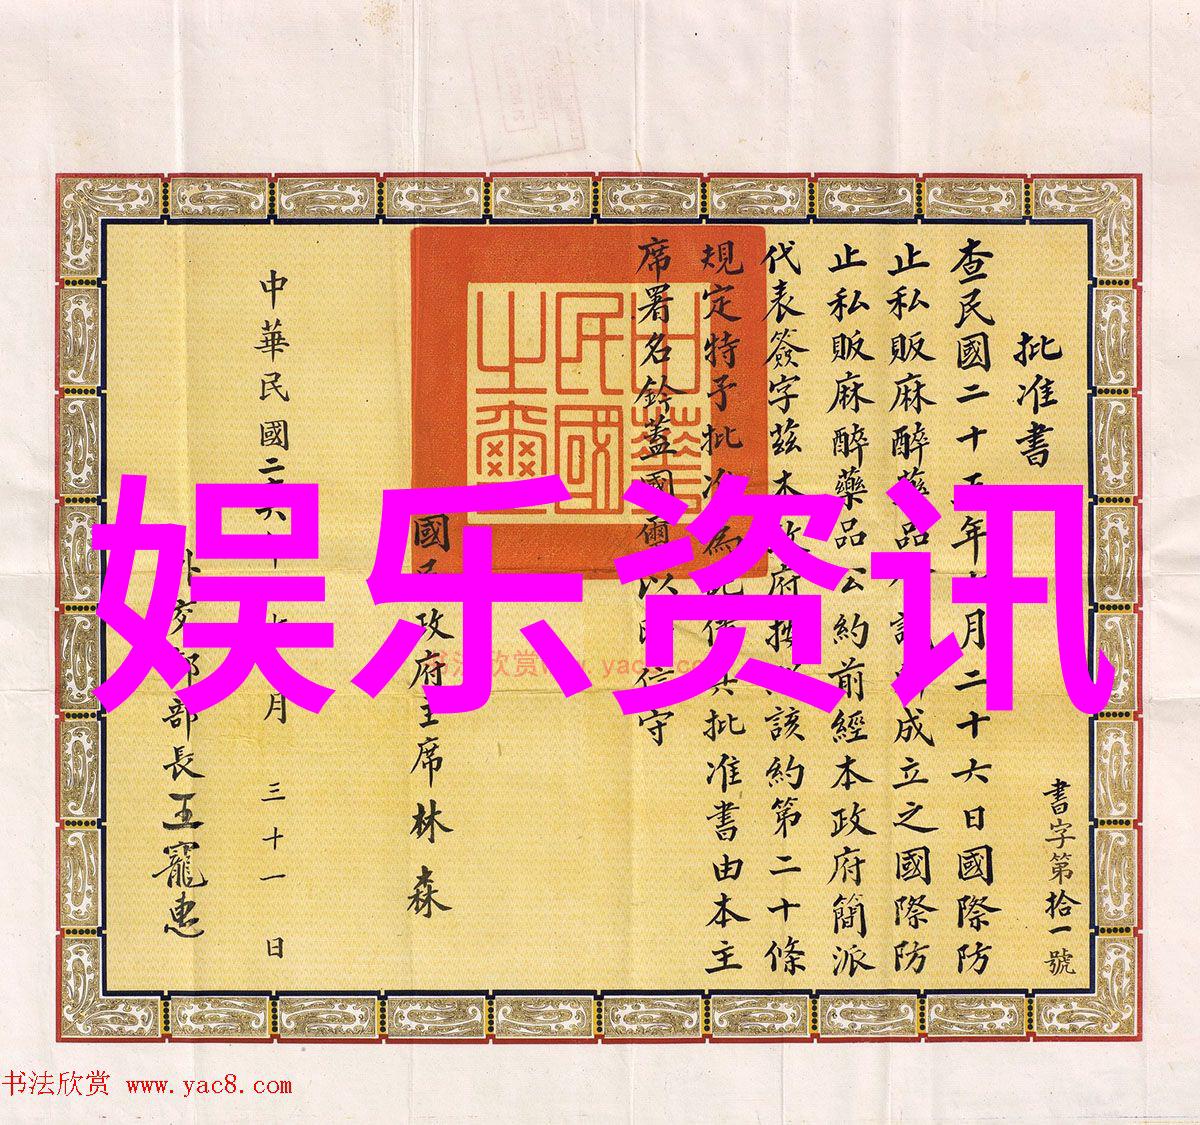 書字第拾一號
批准書
查民國二十五年月二十六日國際防
止私販麻醉藥品議成立之國際防
止私販麻醉藥品公約前經本政府簡派
代表簽字茲本政府該約第二十條
規定特予批准為此備具批准書由本主
席署名鈐蓋國璽以昭信守
中華民國之璽
國民政府主席林森
中華民國二十六年七月三十一日
外交部部長王寵惠
娱乐资讯
书法欣赏 www.yac8.com
书法欣赏 www.yac8.com